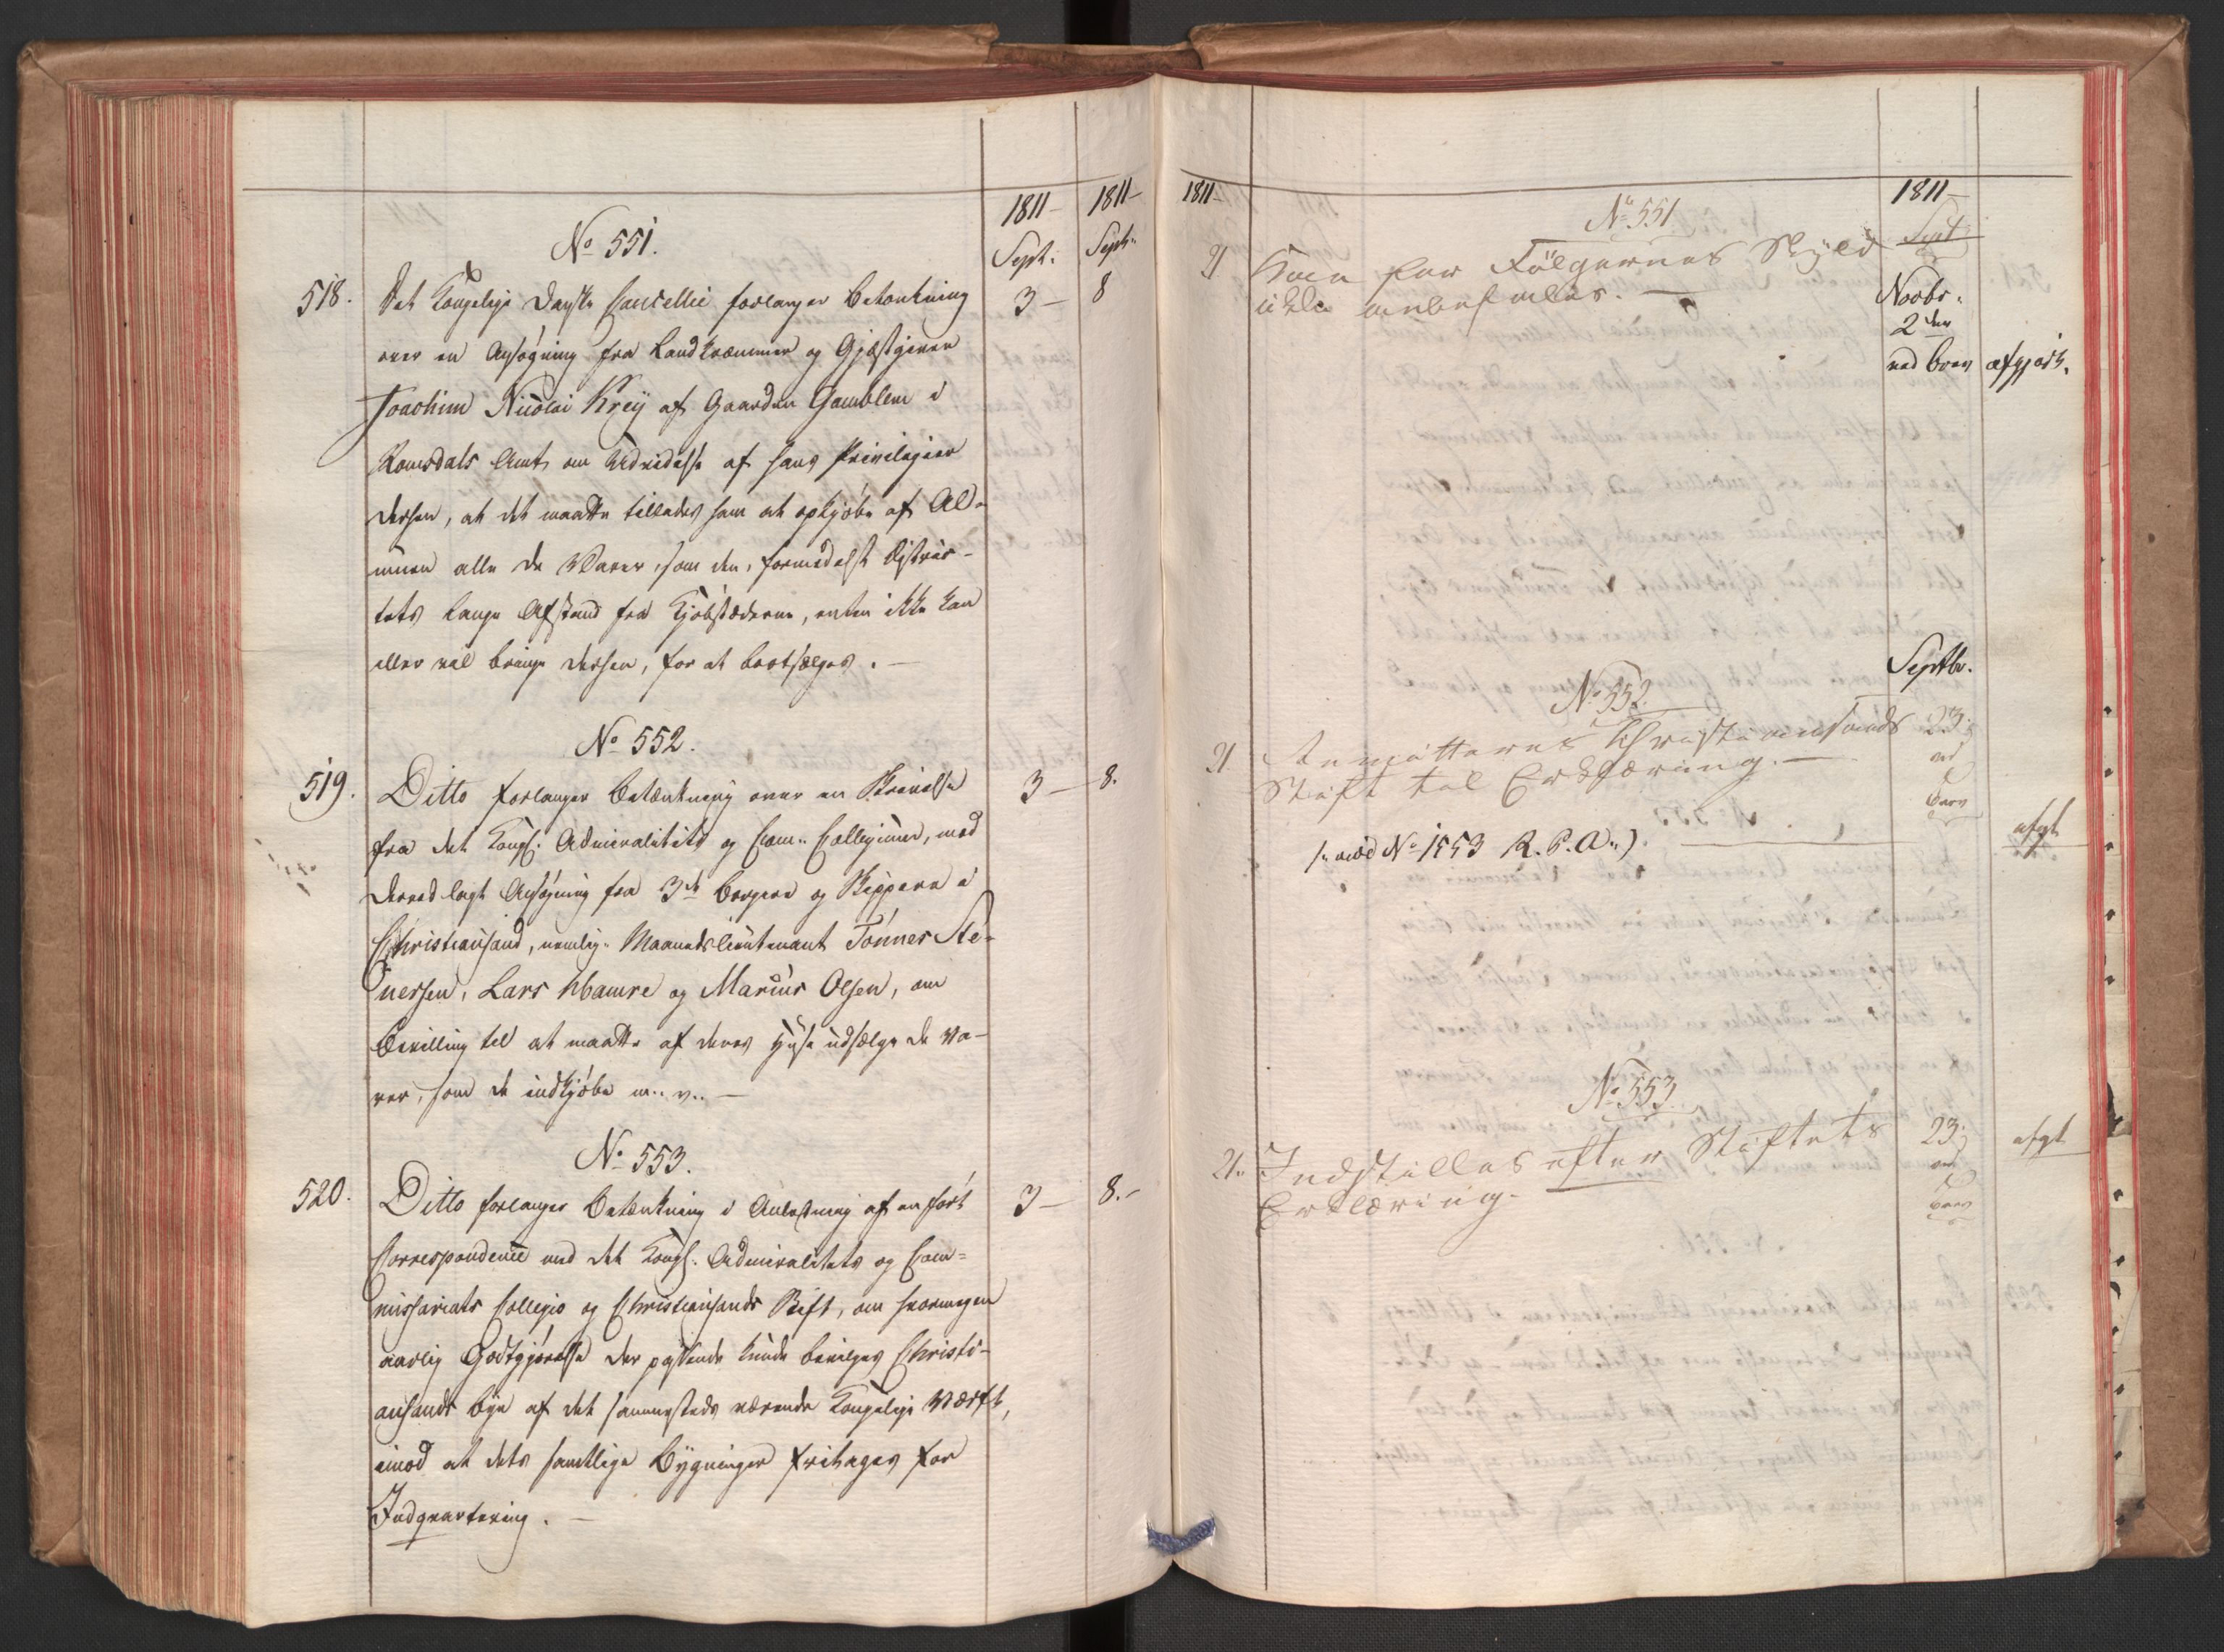 1811 1811
Sept: Sept:
No 551.
518. Det Kongelige Danske Cancellie forlanger Betænkning 3 – 8
over en Ansøgning fra Landkræmmer og Gjæstgiver
Joachim Nicolai Kreÿ af Gaarden Gamblem i
Romsdals Amt, om Udvidelse af hans Privilegier
derhen, at det maatte tillades ham at opkjøbe af Al-
muen alle de Varer, som den, formedelst Distric-
tets lange Afstand fra Kjøbstæderne, enten ikke kan
eller vil bringe derhen, for at bortsælges. –
No 552.
519. Ditto forlanger Betænkning over en Skrivelse 3 – 8.
fra det Kongl. Admiralitets og Com: Collegium, med
derved lagt Ansøgning fra 3de Borgere og Skippere i
Christiansand, nemlig: Maanedslieutenant Tønnes Ste-
nersen, Lars Hamre og Marius Olsen, om
Bevilling til at maatte af deres Huse udsælge de Va-
rer, som de indkjøbe m. v. –
No 553.
520. Ditto forlanger Betænkning i Anledning af en ført 3 – 8. –
Correspondence med det Kongl. Admiralitets og Com=
missariats Collegio og Christiansands Stift, om hvormegen
aarlig Godtgjørelse der passende kunde bevilges Christi-
ansands Bye af det sammesteds værende Kongelige Værft,
imod at dets samtlige Bygninger fritages for
Indqvartering. –
1811 1811
Sept:
No 551
21 Kan for Følgernes Skyld
ikke anbefales. –
Novbr.
2den
ved Brev afgjort.
Septbr.
No 552.
21. Remitteres Christiansands 23.
Stift til Erklæring. – ved
Brev
(: med No 1553 R. P. A :) afgt
No 553
21. Indstilles efter Stiftets 23. afgt
Erklæring. ved
Brev